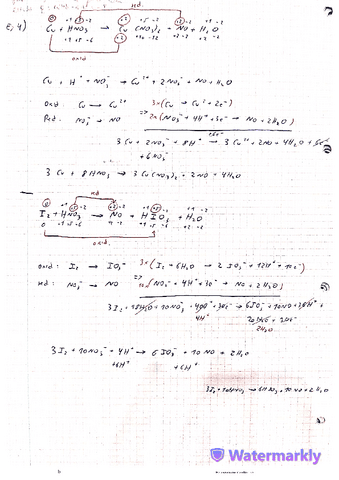 red.
0 +1+5-2 +2 +5-2 +2-2 +1-2
e, 4) Cu + HNO₃ → Cu(NO₃)₂ + NO + H₂O
oxid
Cu + H⁺ + NO₃⁻ → Cu²⁺ + 2NO₃⁻ + NO + H₂O
oxid: Cu → Cu²⁺ 3x (Cu → Cu²⁺ + 2e⁻)
Red: NO₃⁻ → NO => 2x (NO₃⁻ + 4H⁺ + 3e⁻ → NO + 2H₂O)
3 Cu + 2NO₃⁻ + 8H⁺ → 3 Cu²⁺ + 2NO + 4H₂O + 6e⁻
+ 6NO₃⁻
3 Cu + 8HNO₃ → 3 Cu(NO₃)₂ + 2NO + 4H₂O
red
I₂ + HNO₃ → NO + HIO₃ + H₂O
oxid.
oxid: I₂ → IO₃⁻ 3x (I₂ + 6H₂O → 2 IO₃⁻ + 12H⁺ + 10e⁻)
red: NO₃⁻ → NO => 10x (NO₃⁻ + 4H⁺ + 3e⁻ → NO + 2H₂O)
3I₂ + 18H₂O + 10NO₃⁻ + 40H⁺ + 30e⁻ → 6IO₃⁻ + 10NO + 36H⁺
4H⁺
2H₂O
3I₂ + 10NO₃⁻ + 4H⁺ → 6IO₃⁻ + 10 NO + 2H₂O
+6H⁺ +6H⁺
3I₂ + 10HNO₃ → 6HIO₃ + 10NO + 2H₂O
Watermarkly